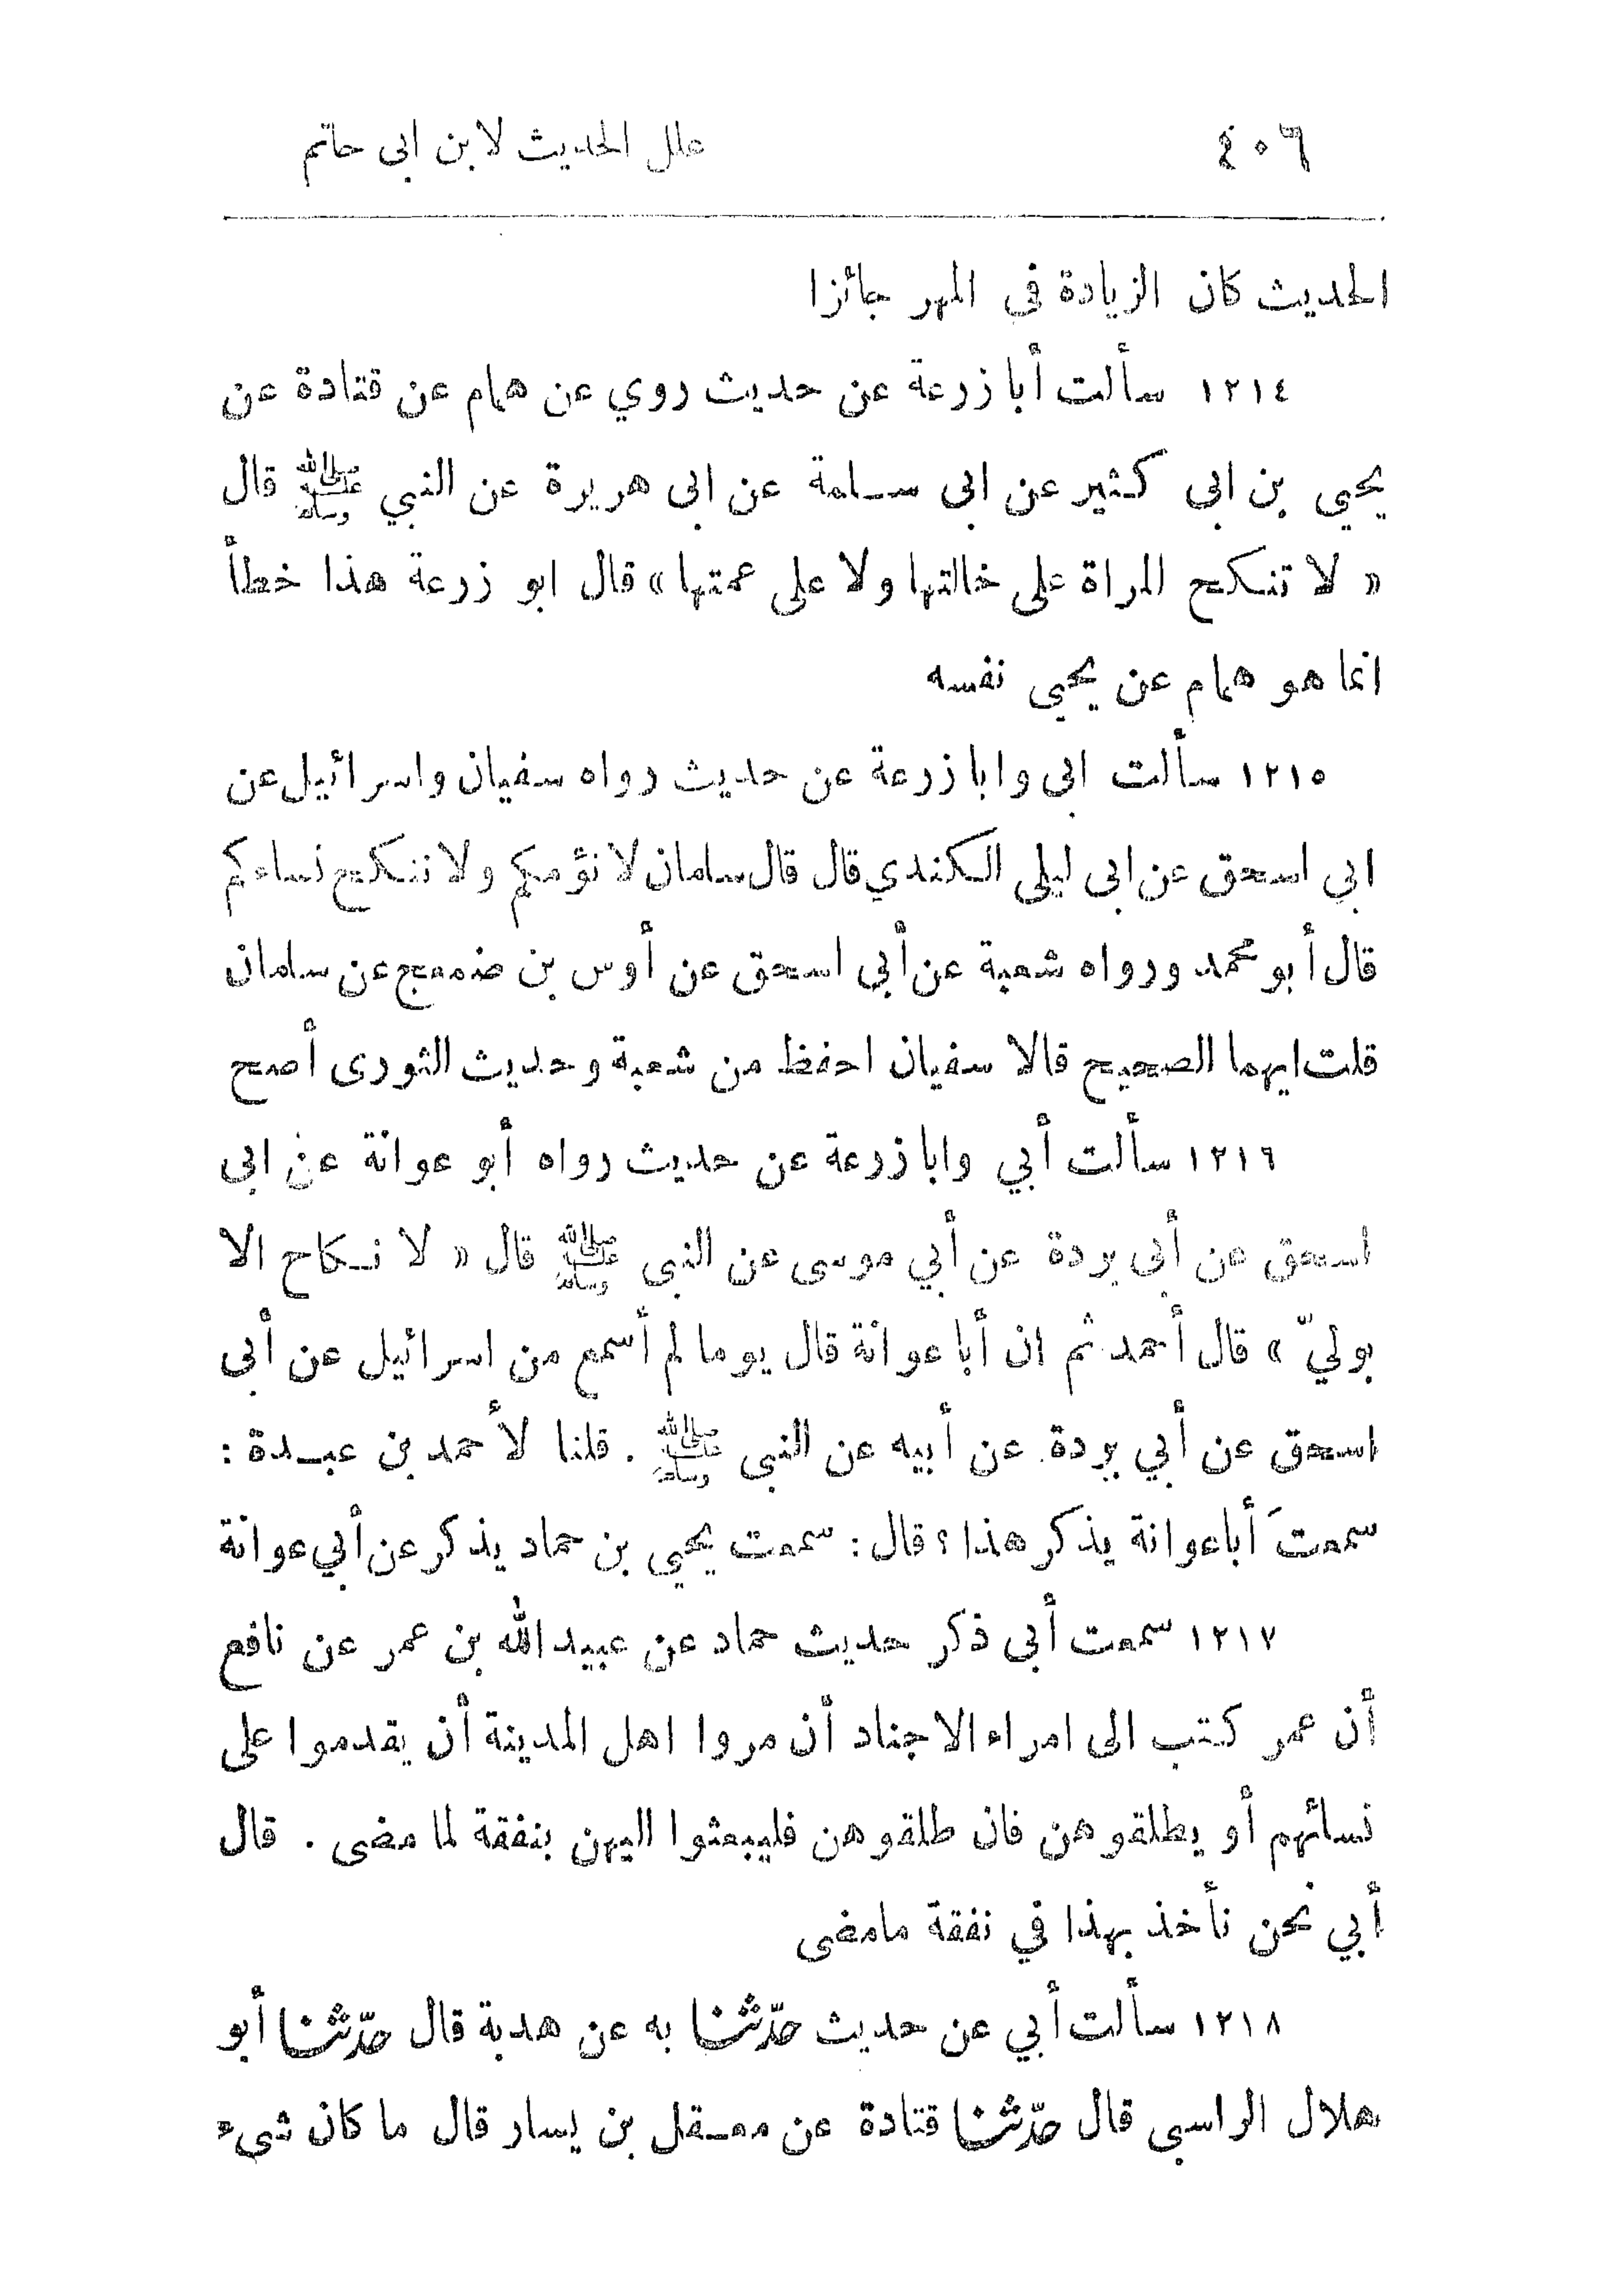 ٤٠٦ علل الحديث لابن ابى حاتم
الحديث كان الزيادة في المهر جائزا
١٢١٤ سألت أبا زرعة عن حديث روي عن همام عن قتادة عن
يحيى بن ابى كثير عن ابى سلمة عن ابى هريرة عن النبي ﷺ قال
« لا تنكح المراة على خالتها ولا على عمتها » قال ابو زرعة هذا خطأ
انما هو همام عن يحيى نفسه
١٢١٥ سألت ابى وابا زرعة عن حديث رواه سفيان واسرائيل عن
ابى اسحق عن ابى ليلى الكندي قال قال سلمان لا نؤمكم ولا ننكح نساءكم
قال أبو محمد ورواه شعبة عن أبي اسحق عن أوس بن ضمعج عن سلمان
قلت ايهما الصحيح قالا سفيان احفظ من شعبة وحديث الثورى أصح
١٢١٦ سألت أبي وابا زرعة عن حديث رواه أبو عوانة عن ابى
اسحق عن أبى بردة عن أبي موسى عن النبى ﷺ قال « لا نكاح الا
بوليّ » قال أحمد ثم ان أبا عوانة قال يوما لم أسمع من اسرائيل عن أبى
اسحق عن أبي بردة عن أبيه عن النبى ﷺ . قلنا لأحمد بن عبدة :
سمعتَ أبا عوانة يذكر هذا ؟ قال : سمعت يحيى بن حماد يذكر عن أبي عوانة
١٢١٧ سمعت أبى ذكر حديث حماد عن عبيد الله بن عمر عن نافع
أن عمر كتب الى امراء الاجناد أن مروا اهل المدينة أن يقدموا على
نسائهم أو يطلقوهن فان طلقوهن فليبعثوا اليهن بنفقة لما مضى . قال
أبي نحن نأخذ بهذا في نفقة ما مضى
١٢١٨ سألت أبي عن حديث حدّثنا به عن هدبة قال حدّثنا أبو
هلال الراسبى قال حدّثنا قتادة عن معقل بن يسار قال ما كان شىء